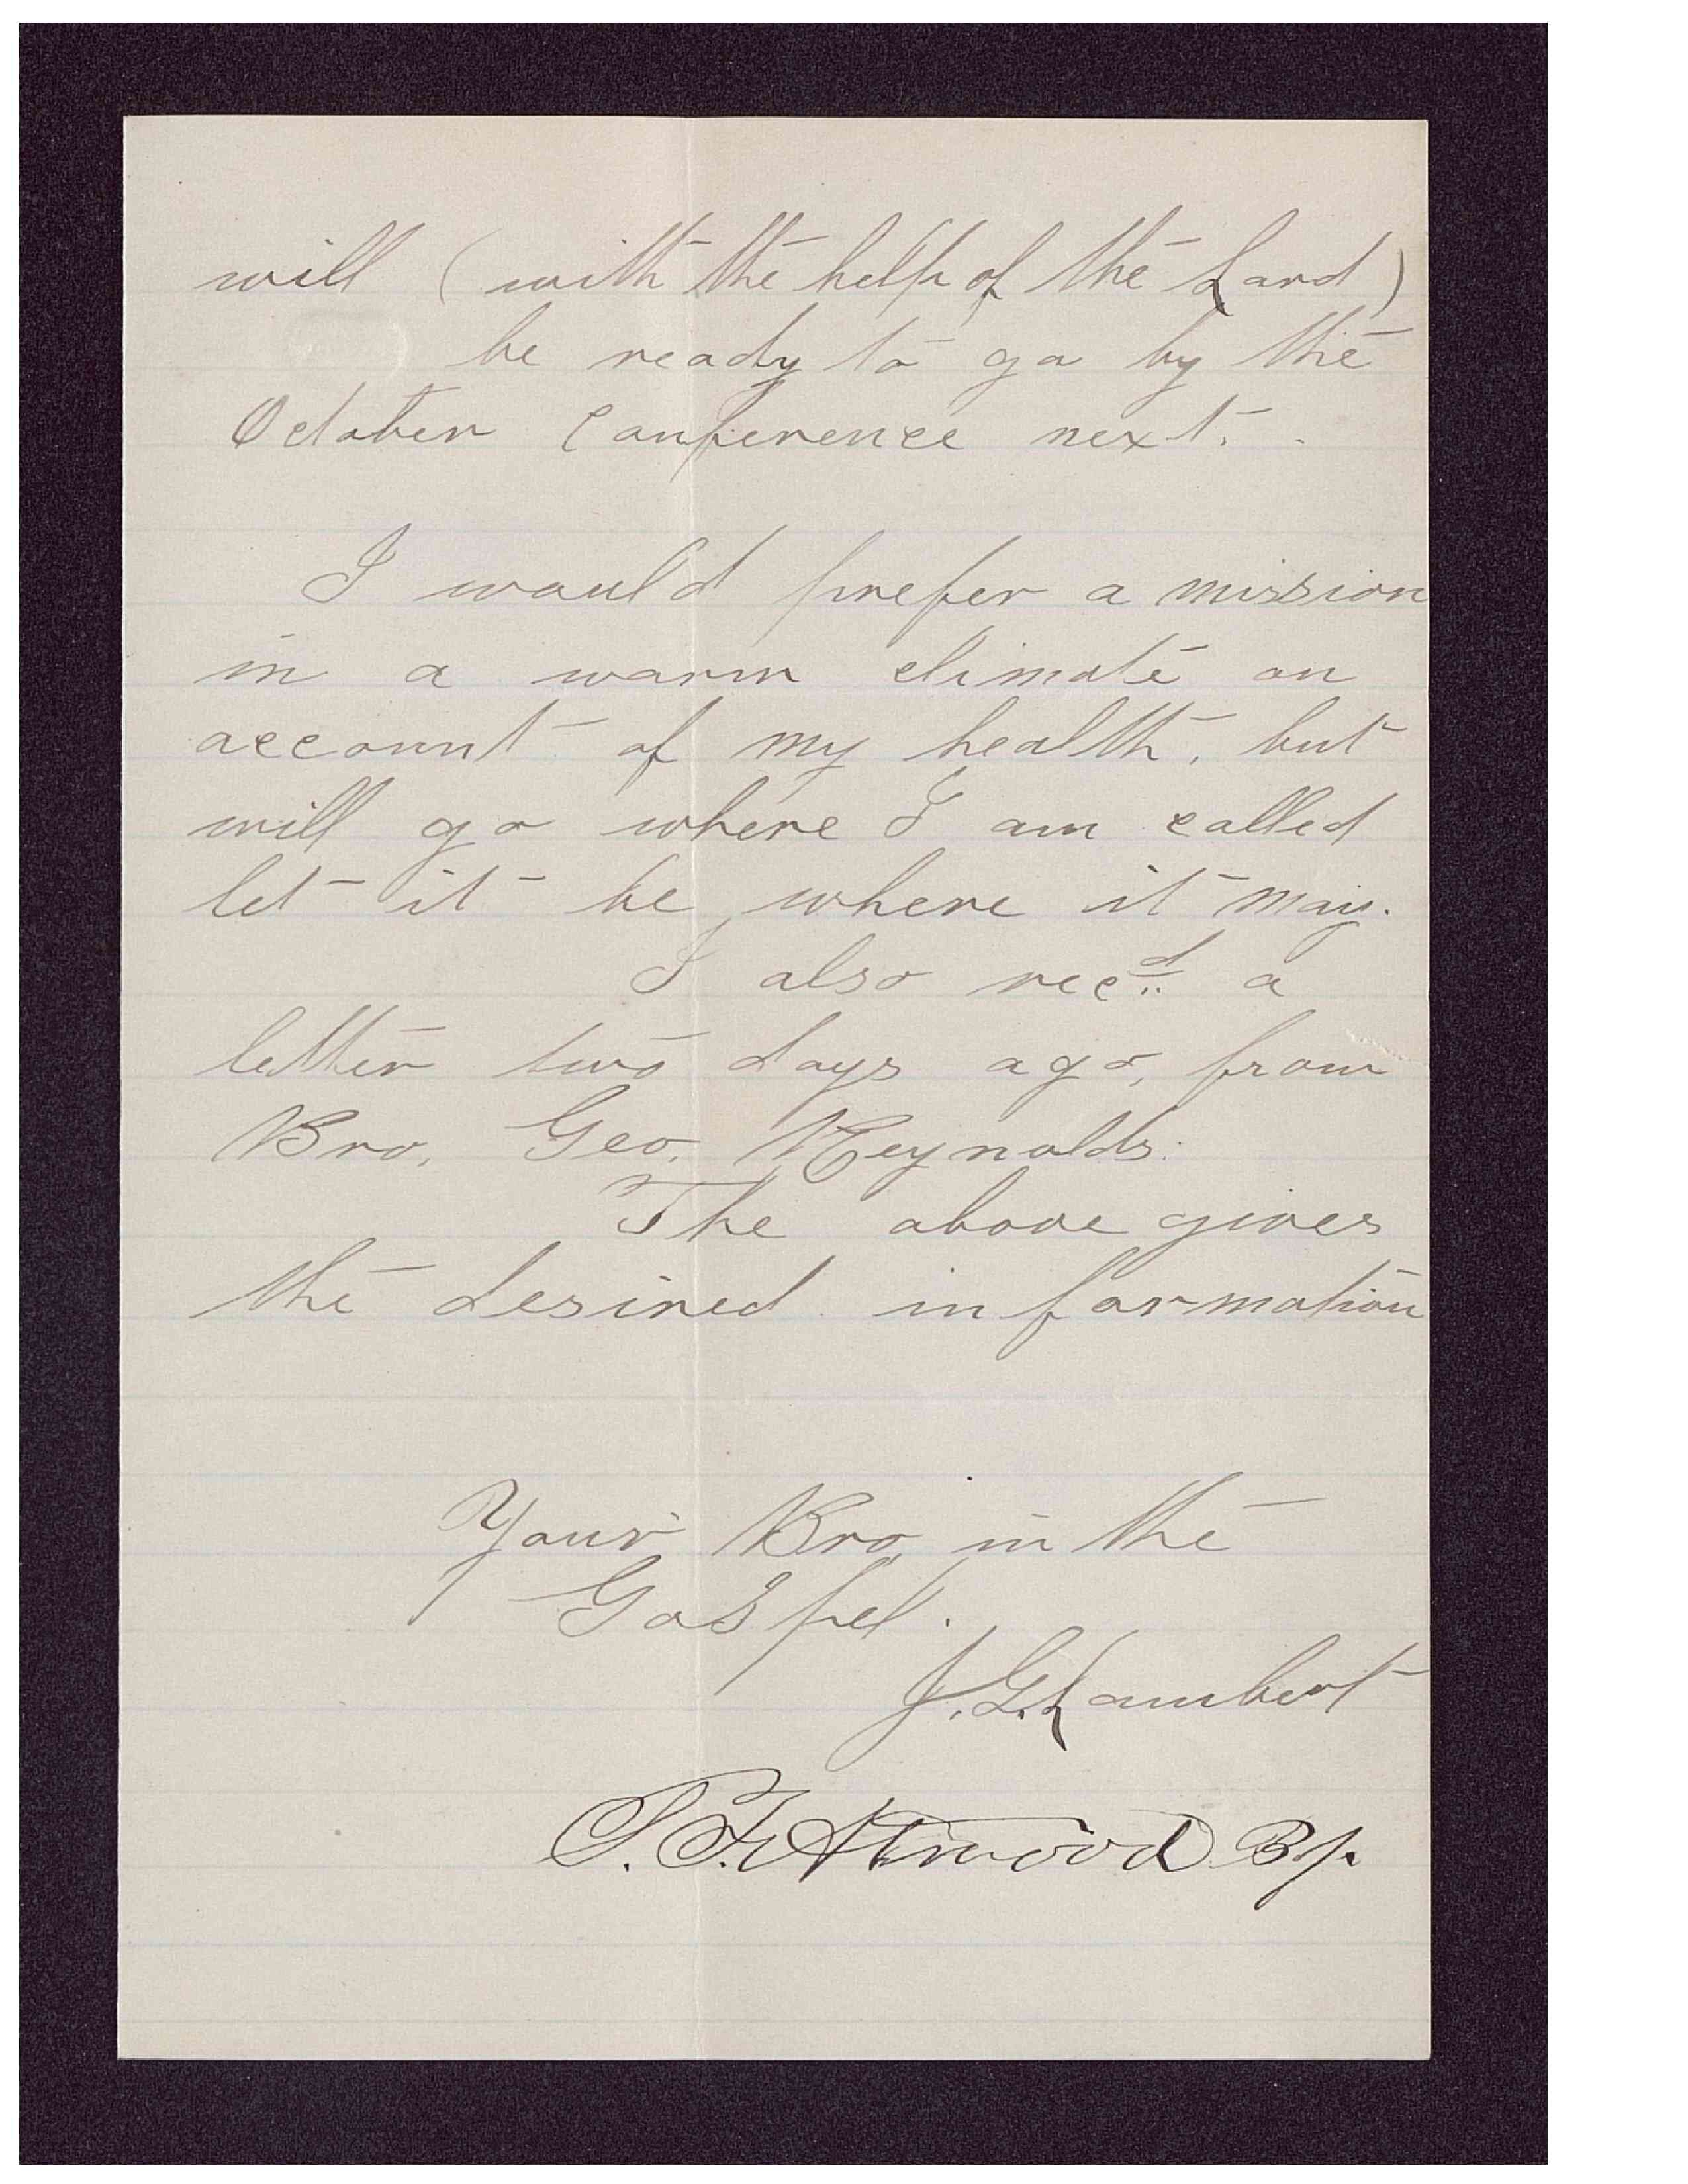 will (with the help of the Lord)
be ready to go by the
October Conference next.
I would prefer a mission
in a warm climate on
account of my health, but
will go where I am called
let it be where it may.
I also recd. a
letter two days ago, from
Bro. Geo. Reynolds.
The above gives
the desired information
Your Bro in the
Gospel.
J. G. Lambert
Atwood Bp.